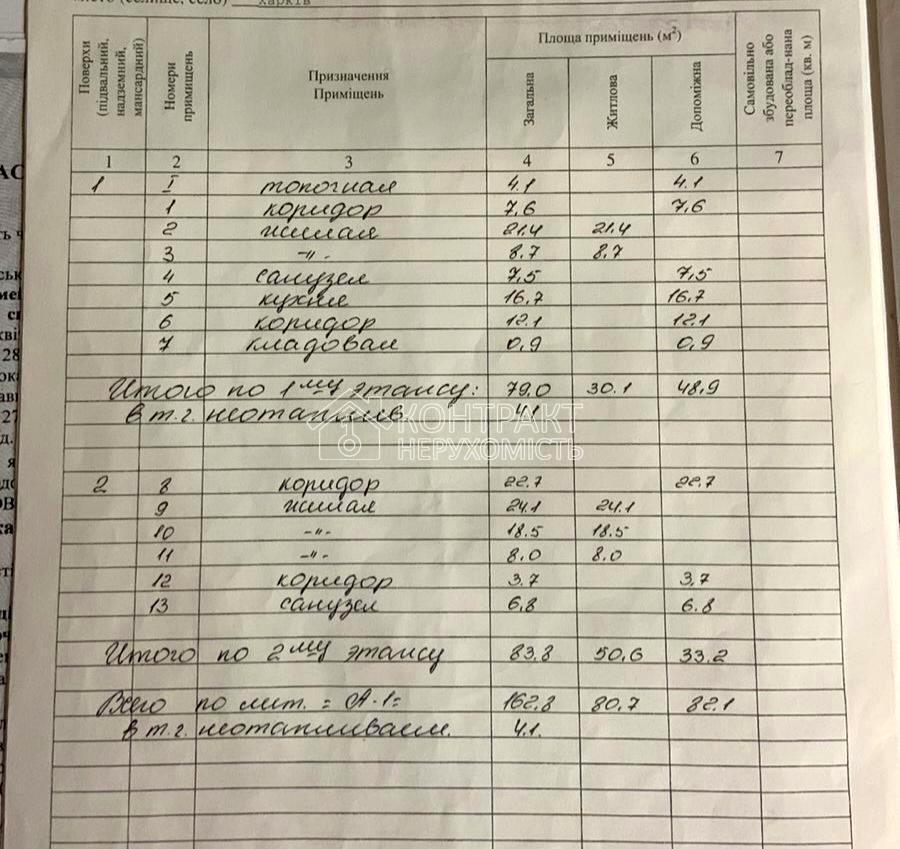 Харків
Поверхи (підвальний, надземний, мансардний)
Номери примищень
Призначення Приміщень
Площа приміщень (м²)
Загальна
Житлова
Допоміжна
Самовільно збудована або переоблад-нана площа (кв. м)
1 2 3 4 5 6 7
1 I топочная 4.1 4.1
1 коридор 7,6 7,6
2 жилая 21.4 21.4
3 -"- 8.7 8.7
4 санузел 7,5 7,5
5 кухня 16,7 16,7
6 коридор 12.1 12.1
7 кладовая 0,9 0,9
Итого по 1му этажу: 79.0 30.1 48,9
в т.ч. неотаплив. 4.1
КОНТРАКТ
НЕРУХОМІСТЬ
2 8 коридор 22.7 22.7
9 жилая 24.1 24.1
10 -"- 18.5 18.5
11 -"- 8.0 8.0
12 коридор 3.7 3.7
13 санузел 6,8 6.8
Итого по 2му этажу 83.8 50,6 33.2
Всего по лит. = А-1= 162.8 80.7 82.1
в т.ч. неотапливаем. 4.1.